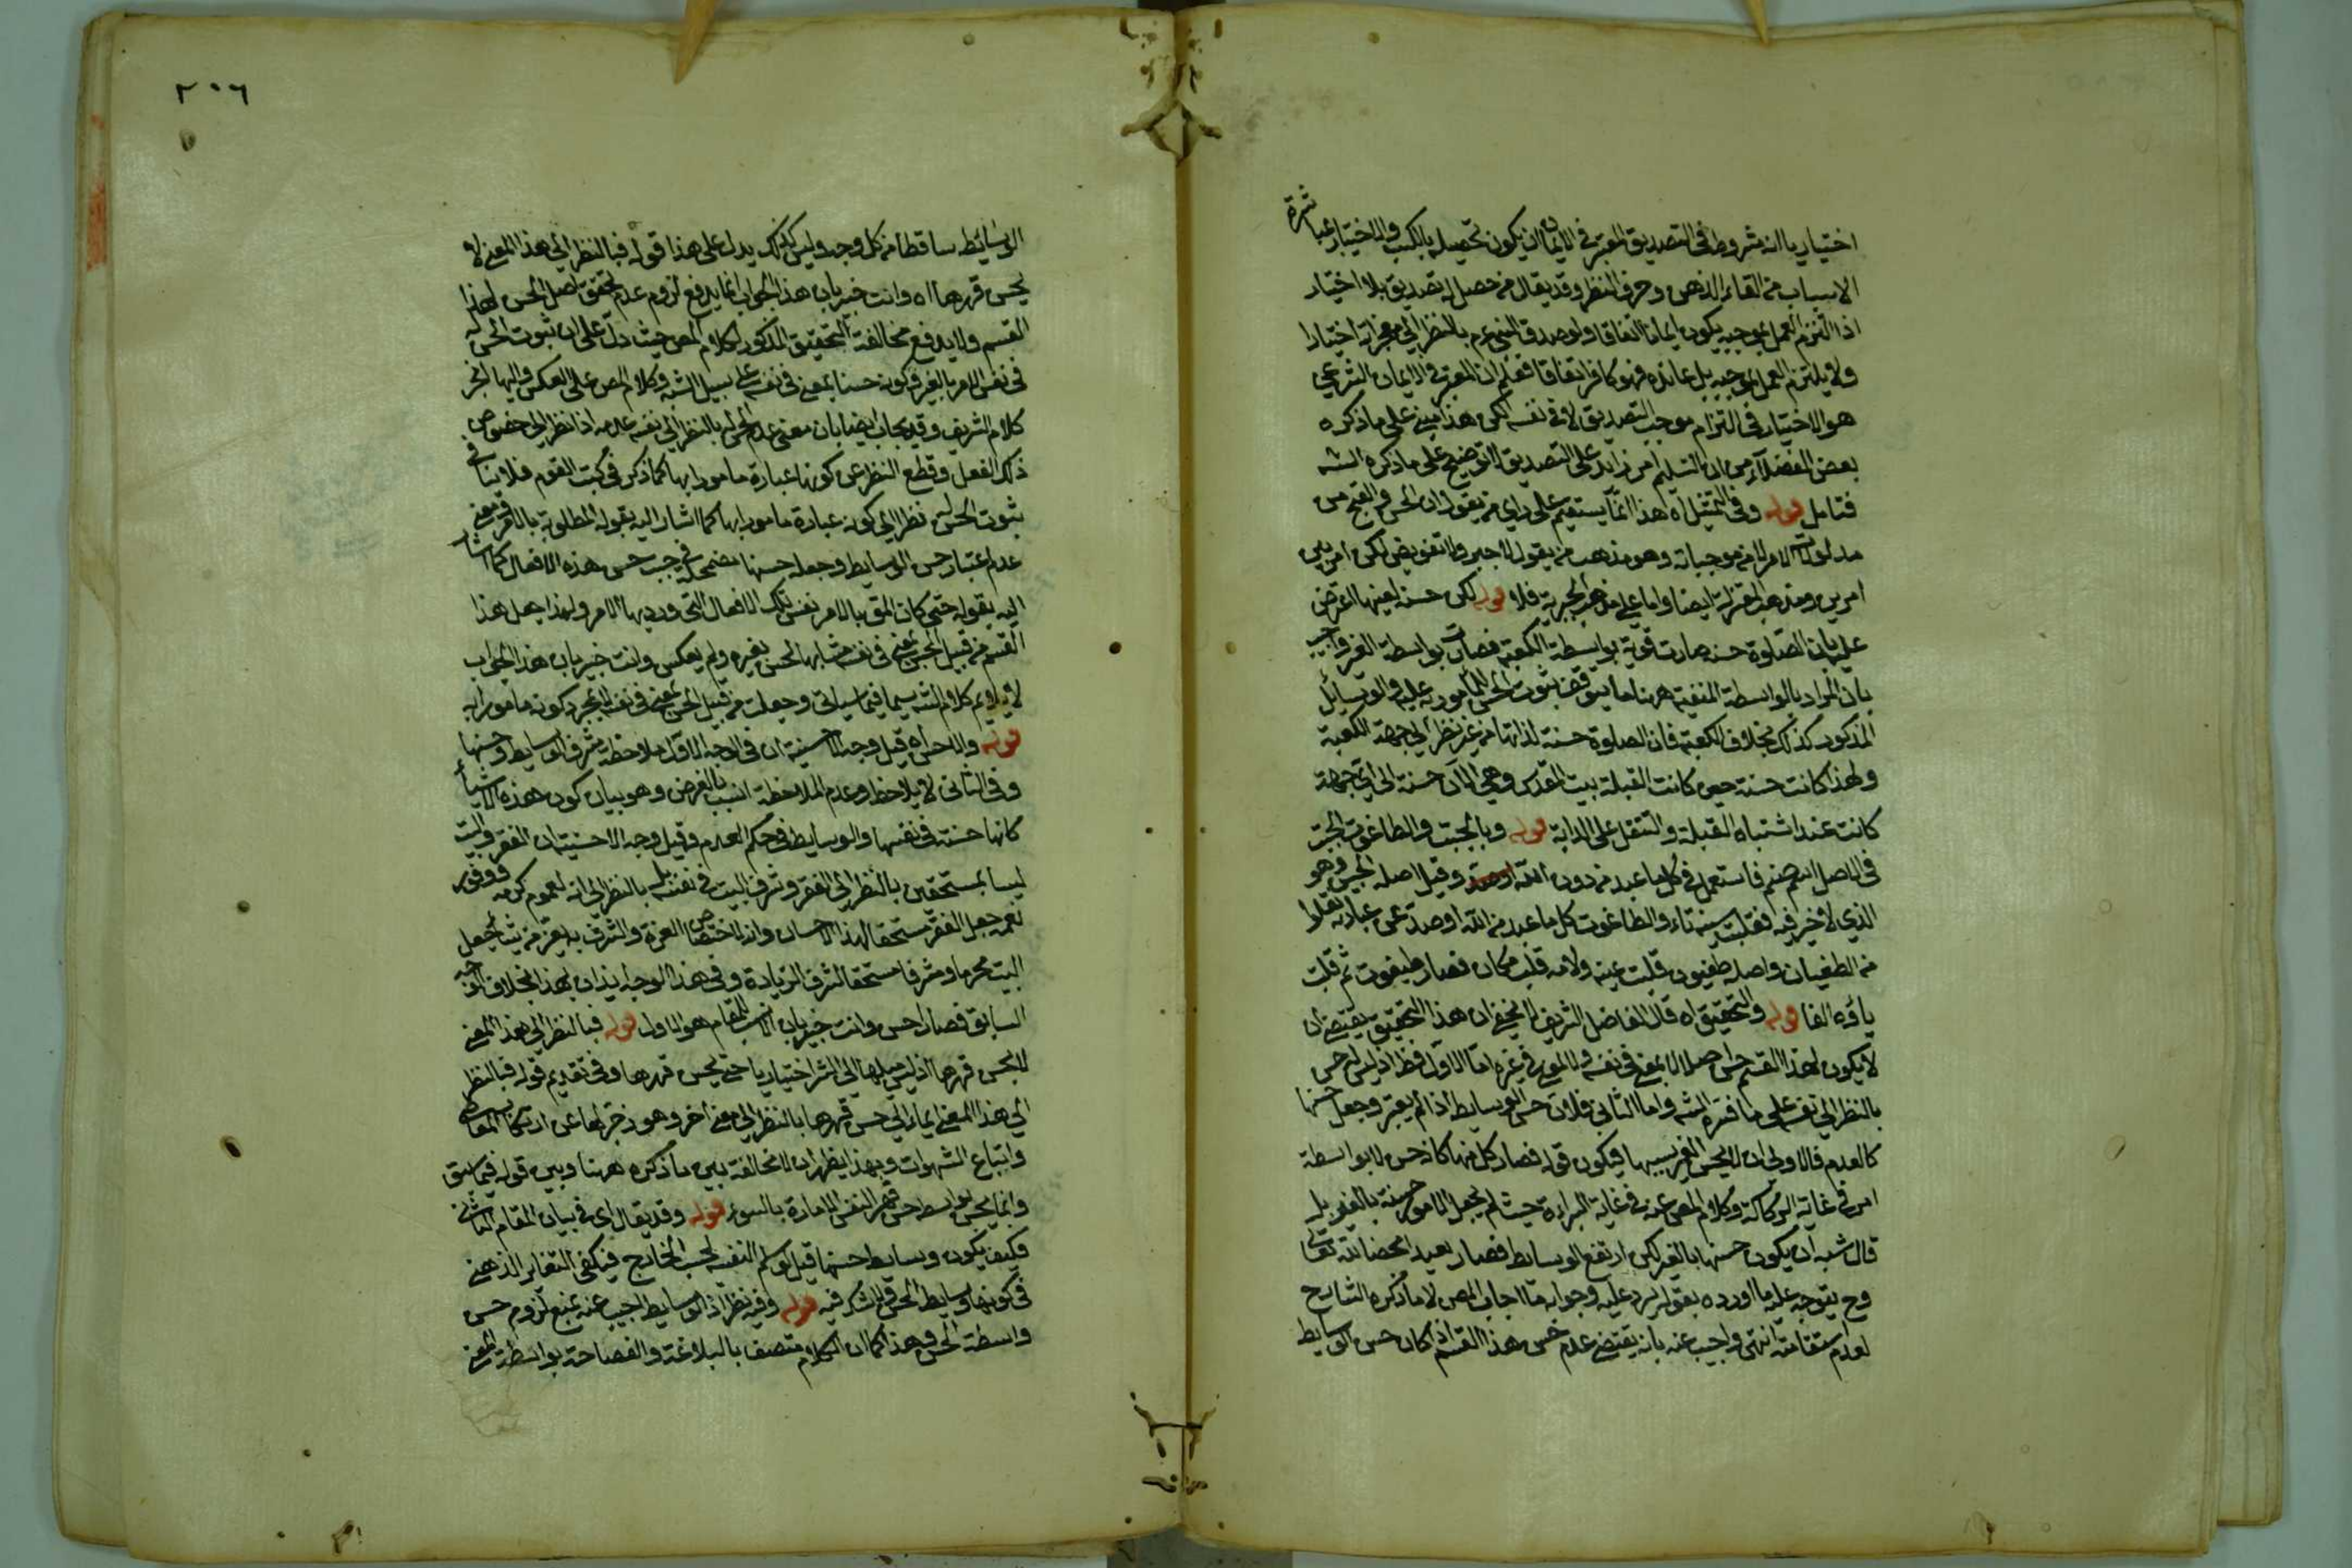 اختياريا انه مشروط في التصديق المعتبر في الايمان ان يكون تحصيله بالكسب والاختيار بمباشرة
الاسباب من القاء الذهن وصرف النظر وقد يقال من حصل له تصديق بلا اختيار
اذا التزم العمل بموجبه يكون ايمانا اتفاقا ولو صدق النبي عم بالنظر الى معجزاته اختيارا
ولا يلتزم العمل بموجبه بل عانده فهو كافر اتفاقا فعلم ان المعتبر في الايمان الشرعي
هو الاختيار في التزام موجب التصديق لا في نفسه لكن هذا مبني على ما ذكره
بعض الفضلاء من ان التسليم امر زايد على التصديق والتوضيح على ما ذكره الشه
فتامل قوله وفي التمثيل اه هذا انما يستقيم على راي من يقول ان الحسن والقبح من
مدلولات الامر لا من موجباته وهو مذهب من يقول لا جبر ولا تفويض لكن امر بين
امرين ومذهب المعتزلة ايضا واما على مذهب الجبرية فلا قوله لكن حسنه لعينها اعترض
عليه بان الصلوة حسنه صارت قوية بواسطة الكعبة فصارت بواسطة الغير واجيب
بان المراد بالواسطة المنفية ههنا ما يتوقف ثبوت الحسن للمأمور به عليه والوسائل
المذكور كذلك بخلاف الكعبة فان الصلوة حسنة لذاتها من غير نظر الى جهة الكعبة
ولهذا كانت حسنة حين كانت القبلة بيت المقدس وهي الآن حسنة الى اي جهة
كانت عند اشتباه القبلة والتنفل على الدابة قوله وبالجبت والطاغوت الجبت
في الاصل اسم صنم فاستعمل في كل ما عبد من دون الله وقيل اصله الجبس وهو
الذي لا خير فيه فقلبت سينه تاء والطاغوت كل ما عبد من الله او صد عن عبادته تعالى
من الطغيان واصله طغيوت قلبت عينه ولامه قلب مكان فصار طيغوت ثم قلبت
ياؤه الفا قوله والتحقيق اه قال الفاضل الشريف لا يخفى ان هذا التحقيق يقتضي ان
لا يكون لهذا القسم حسن اصلا لا بمعنى في نفسه ولا لمعنى في غيره اما الاول فظ اذ ليس له حسن
بالنظر الى نفسه على ما فسره الشه واما الثاني فلان حسن الوسايط اذا لم يعتبر وجعل حسنها
كالعدم فالاولى ان لا يحسن الغير بسببها فيكون قوله فصار كل منها كانه حسن لا بواسطة
امر في غاية الركاكة وكلام المص عنه في غاية البراءة حيث لم يجعل الامور حسنة بالغير بل
قال شبه ان يكون حسنها بالغير لكن ارتفع الوسايط فصار تعبدا محضا لله تعالى
وح يتوجه عليه ما اورده بقوله يرد عليه وجوابه ما اجاب المص لا ما ذكره الشارح
لعدم استقامته انتهى واجيب عنه بانه يقتضي عدم حسن هذا القسم اذا كان حسن الوسايط
٢٠٦
الوسائط ساقطا من كل وجه وليس كذلك يدل على هذا قوله فبالنظر الى هذا المعنى لا
يحسن قهرها اه وانت خبير بان هذا الجواب انما يدفع لزوم عدم تحقق اصل الحسن لهذا
القسم ولا يدفع مخالفة التحقيق المذكور لكلام المص حيث دل على ان ثبوت الحسن له
في نفس الامر بالغير وكونه حسنا بمعنى في نفسه على سبيل الشبه وكلام المص على العكس واليها انجر
كلام الشريف وقد يجاب ايضا بان معنى عدم الحسن له بالنظر الى نفسه عدمه اذا نظر الى خصوص
ذلك الفعل وقطع النظر عن كونها عبادة مامورا بها كما ذكر في كتب القوم فلا ينافي
ثبوت الحسن له نظرا الى كونه عبادة مامورا بها كما اشار اليه بقوله المطلوبة بالامر ومعنى
عدم اعتبار حسن الوسايط وجعله حسنها مضمحلة في جنب حسن هذه الافعال كما اشار
اليه بقوله حتى كان المق بالامر نفس تلك الافعال التي ورد بها الامر ولهذا جعل هذا
القسم من قبيل الحسن لمعنى في نفسه مشابها لحسن بغيره ولم يعكس وانت خبير بان هذا الجواب
لا يلايم كلام الشه سيما فيما سياتي وجعلت من قبيل الحسن لمعنى في نفسه بمجرد كونه مامورا به
قوله والاحسن اه قيل وجه الاحسنية ان في الوجه الاول ملاحظة شرف الوسايط وحسنها
وفي الثاني لا يلاحظ وعدم الملاحظة انسب بالغرض وهو بيان كون هذه الاشياء
كانها حسنة في نفسها والوسايط في حكم العدم وقيل وجه الاحسنية ان الفقر والبيت
ليسا بمستحقين بالنظر الى الفقر وشرف البيت في نفسه بل بالنظر الى انه لعموم كرمه ووفور
نعمه جعل الفقر مستحقا لهذا الاحسان وانه لاختصاص العزة والشرف به يعز من يشاء جعل
البيت محرما ومشرفا مستحقا لشرف الزيادة وفي هذا الوجه ايذان بهذا بخلاف الوجه
السابق فصار احسن وانت خبير بان الانسب للمقام هو الاول قوله فبالنظر الى هذا المعنى
لا يحسن قهرها اذ ليس ميلها الى الشر اختياريا حتى يحسن قهرها وفي تقديم قوله فبالنظر
الى هذا المعنى ايماء الى حسن قهرها بالنظر الى معنى آخر وهو زجرها عن ارتكاب المعاصي
واتباع الشهوات وبهذا يظهر ان لا مخالفة بين ما ذكره ههنا وبين قوله فيما سبق
وانما يحسن بواسطة حسن قهر النفس الامارة بالسوء قوله وقد يقال اي في بيان المقام الثاني
فكيف يكون وسايط حسنها قيل لو سلم النفسية بحسب الخارج فيكفي التغاير الذهني
في كونها وسايط الحسن فلا شك فيه قوله وفيه نظر اذ الوسايط اجيب عنه بمنع لزوم حسن
واسطة الحسن وهذا كما ان الكلام متصف بالبلاغة والفصاحة بواسطة المعنى